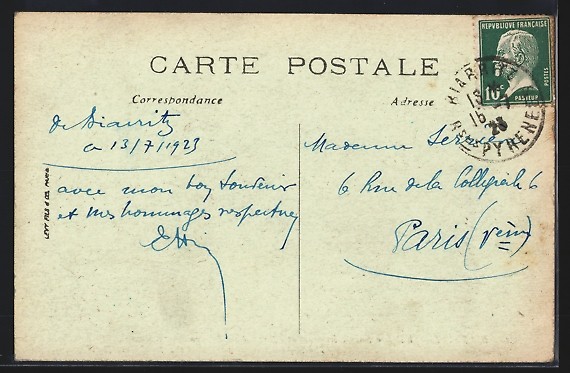 REPUBLIQUE FRANÇAISE
10c
POSTES
PASTEUR
BIARRITZ
23
BSES PYRENEES
CARTE POSTALE
Correspondance
Adresse
de Biarritz
ce 13/7/1923
avec mon bon souvenir
et mes hommages respectueux
Madame
6 Rue de la Collégiale 6
Paris (Vème)
LEVY FILS & CIE, PARIS